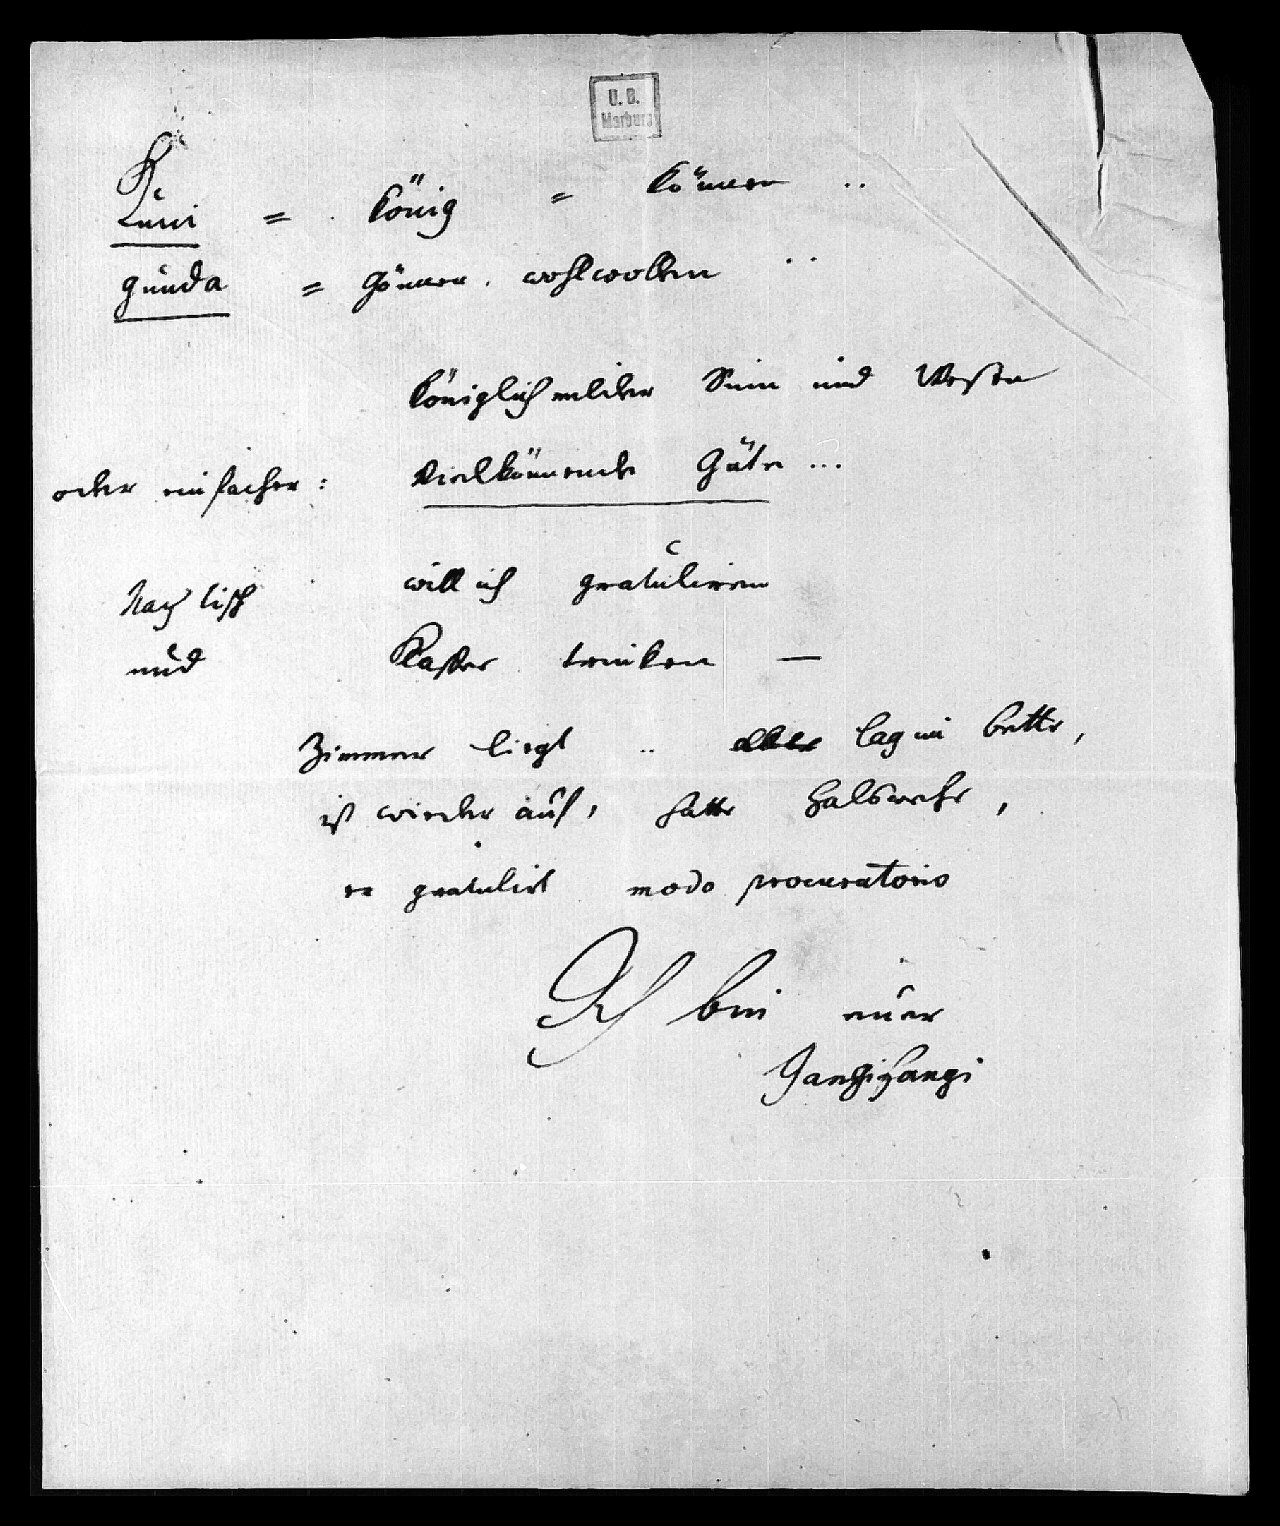 U. B.
Marburg
Kuni = König = können ..
gunda = gönnen . wohlwollen ..
königlich milder Sinn und
oder einfacher : Vielkönnende Güte ...
Nach Tisch will ich gratuliren
und Kaffee trinken —
Zimmer liegt .. lag im Bette,
ist wieder auf, hatte Halswehe,
er gratulirt modo procuratorio
Ich bin euer